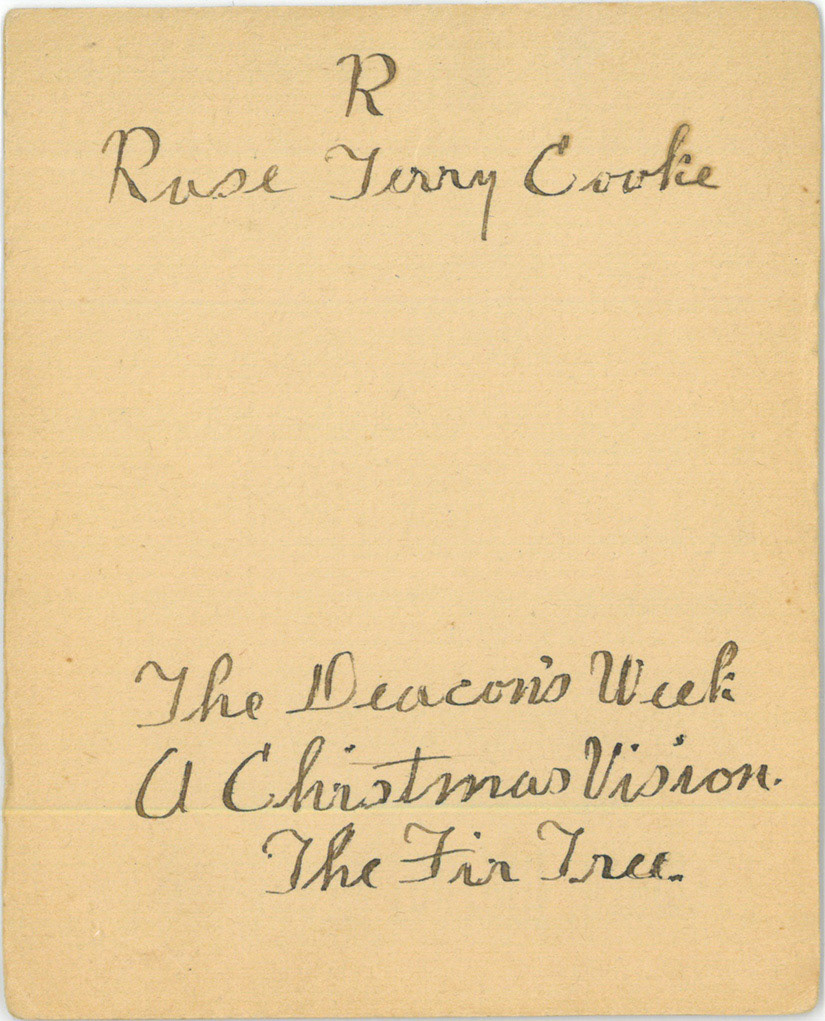 R
Rose Terry Cooke
The Deacon's Week
A Christmas Vision.
The Fir Tree.